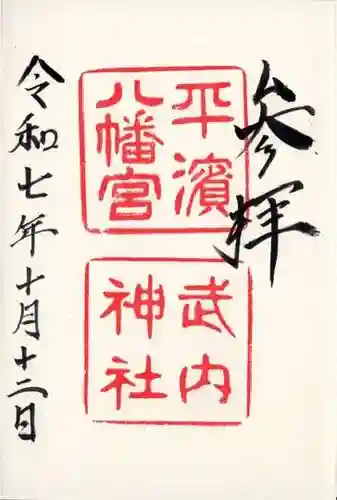 參拝
平濱
八幡宮
武内
神社
令和七年十月十二日